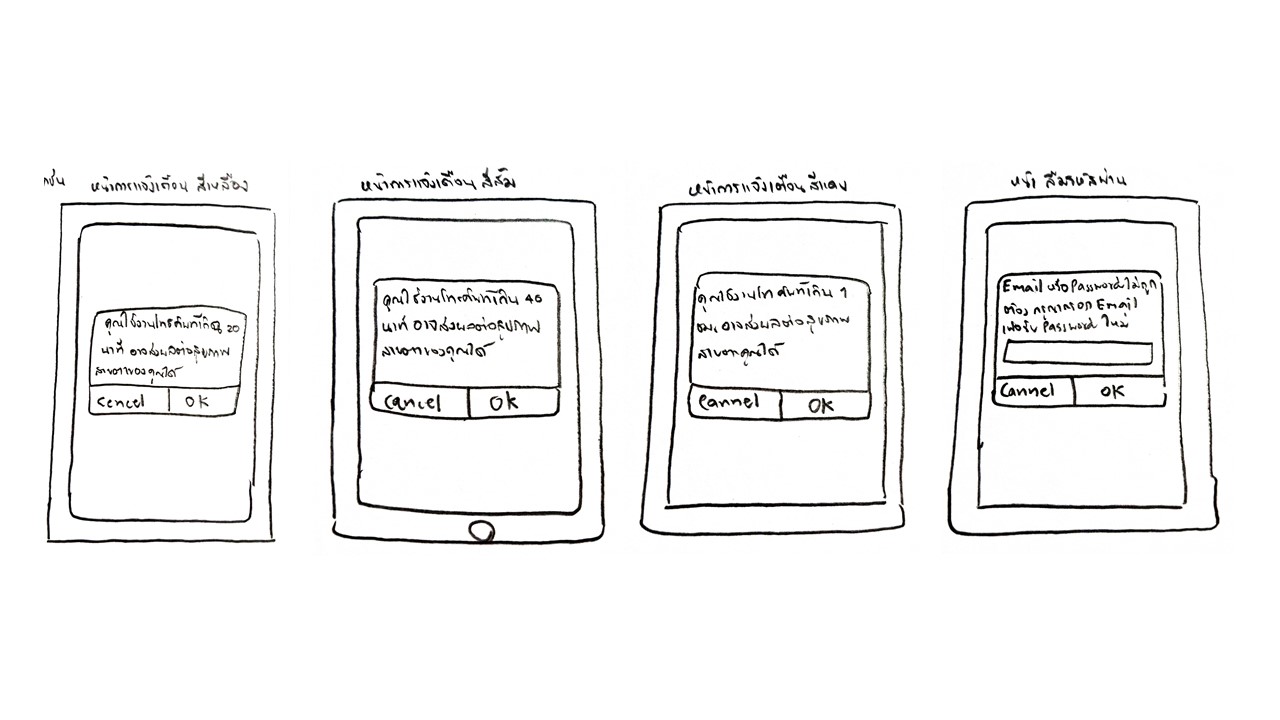 หน้าการแจ้งเตือน สีเหลือง
คุณใช้งานโทรศัพท์เกิน 20
นาที อาจส่งผลต่อสุขภาพ
สายตาของคุณได้
Cencel OK
หน้าการแจ้งเตือน สีส้ม
คุณใช้งานโทรศัพท์เกิน 40
นาที อาจส่งผลต่อสุขภาพ
สายตาของคุณได้
Cancel OK
หน้าการแจ้งเตือน สีแดง
คุณใช้งานโทรศัพท์เกิน 1
ชม. อาจส่งผลต่อสุขภาพ
สายตาคุณได้
Cannel OK
หน้า ลืมรหัสผ่าน
Email หรือ Password ไม่ถูก
ต้อง กรุณากรอก Email
เพื่อรับ Password ใหม่
Cannel OK